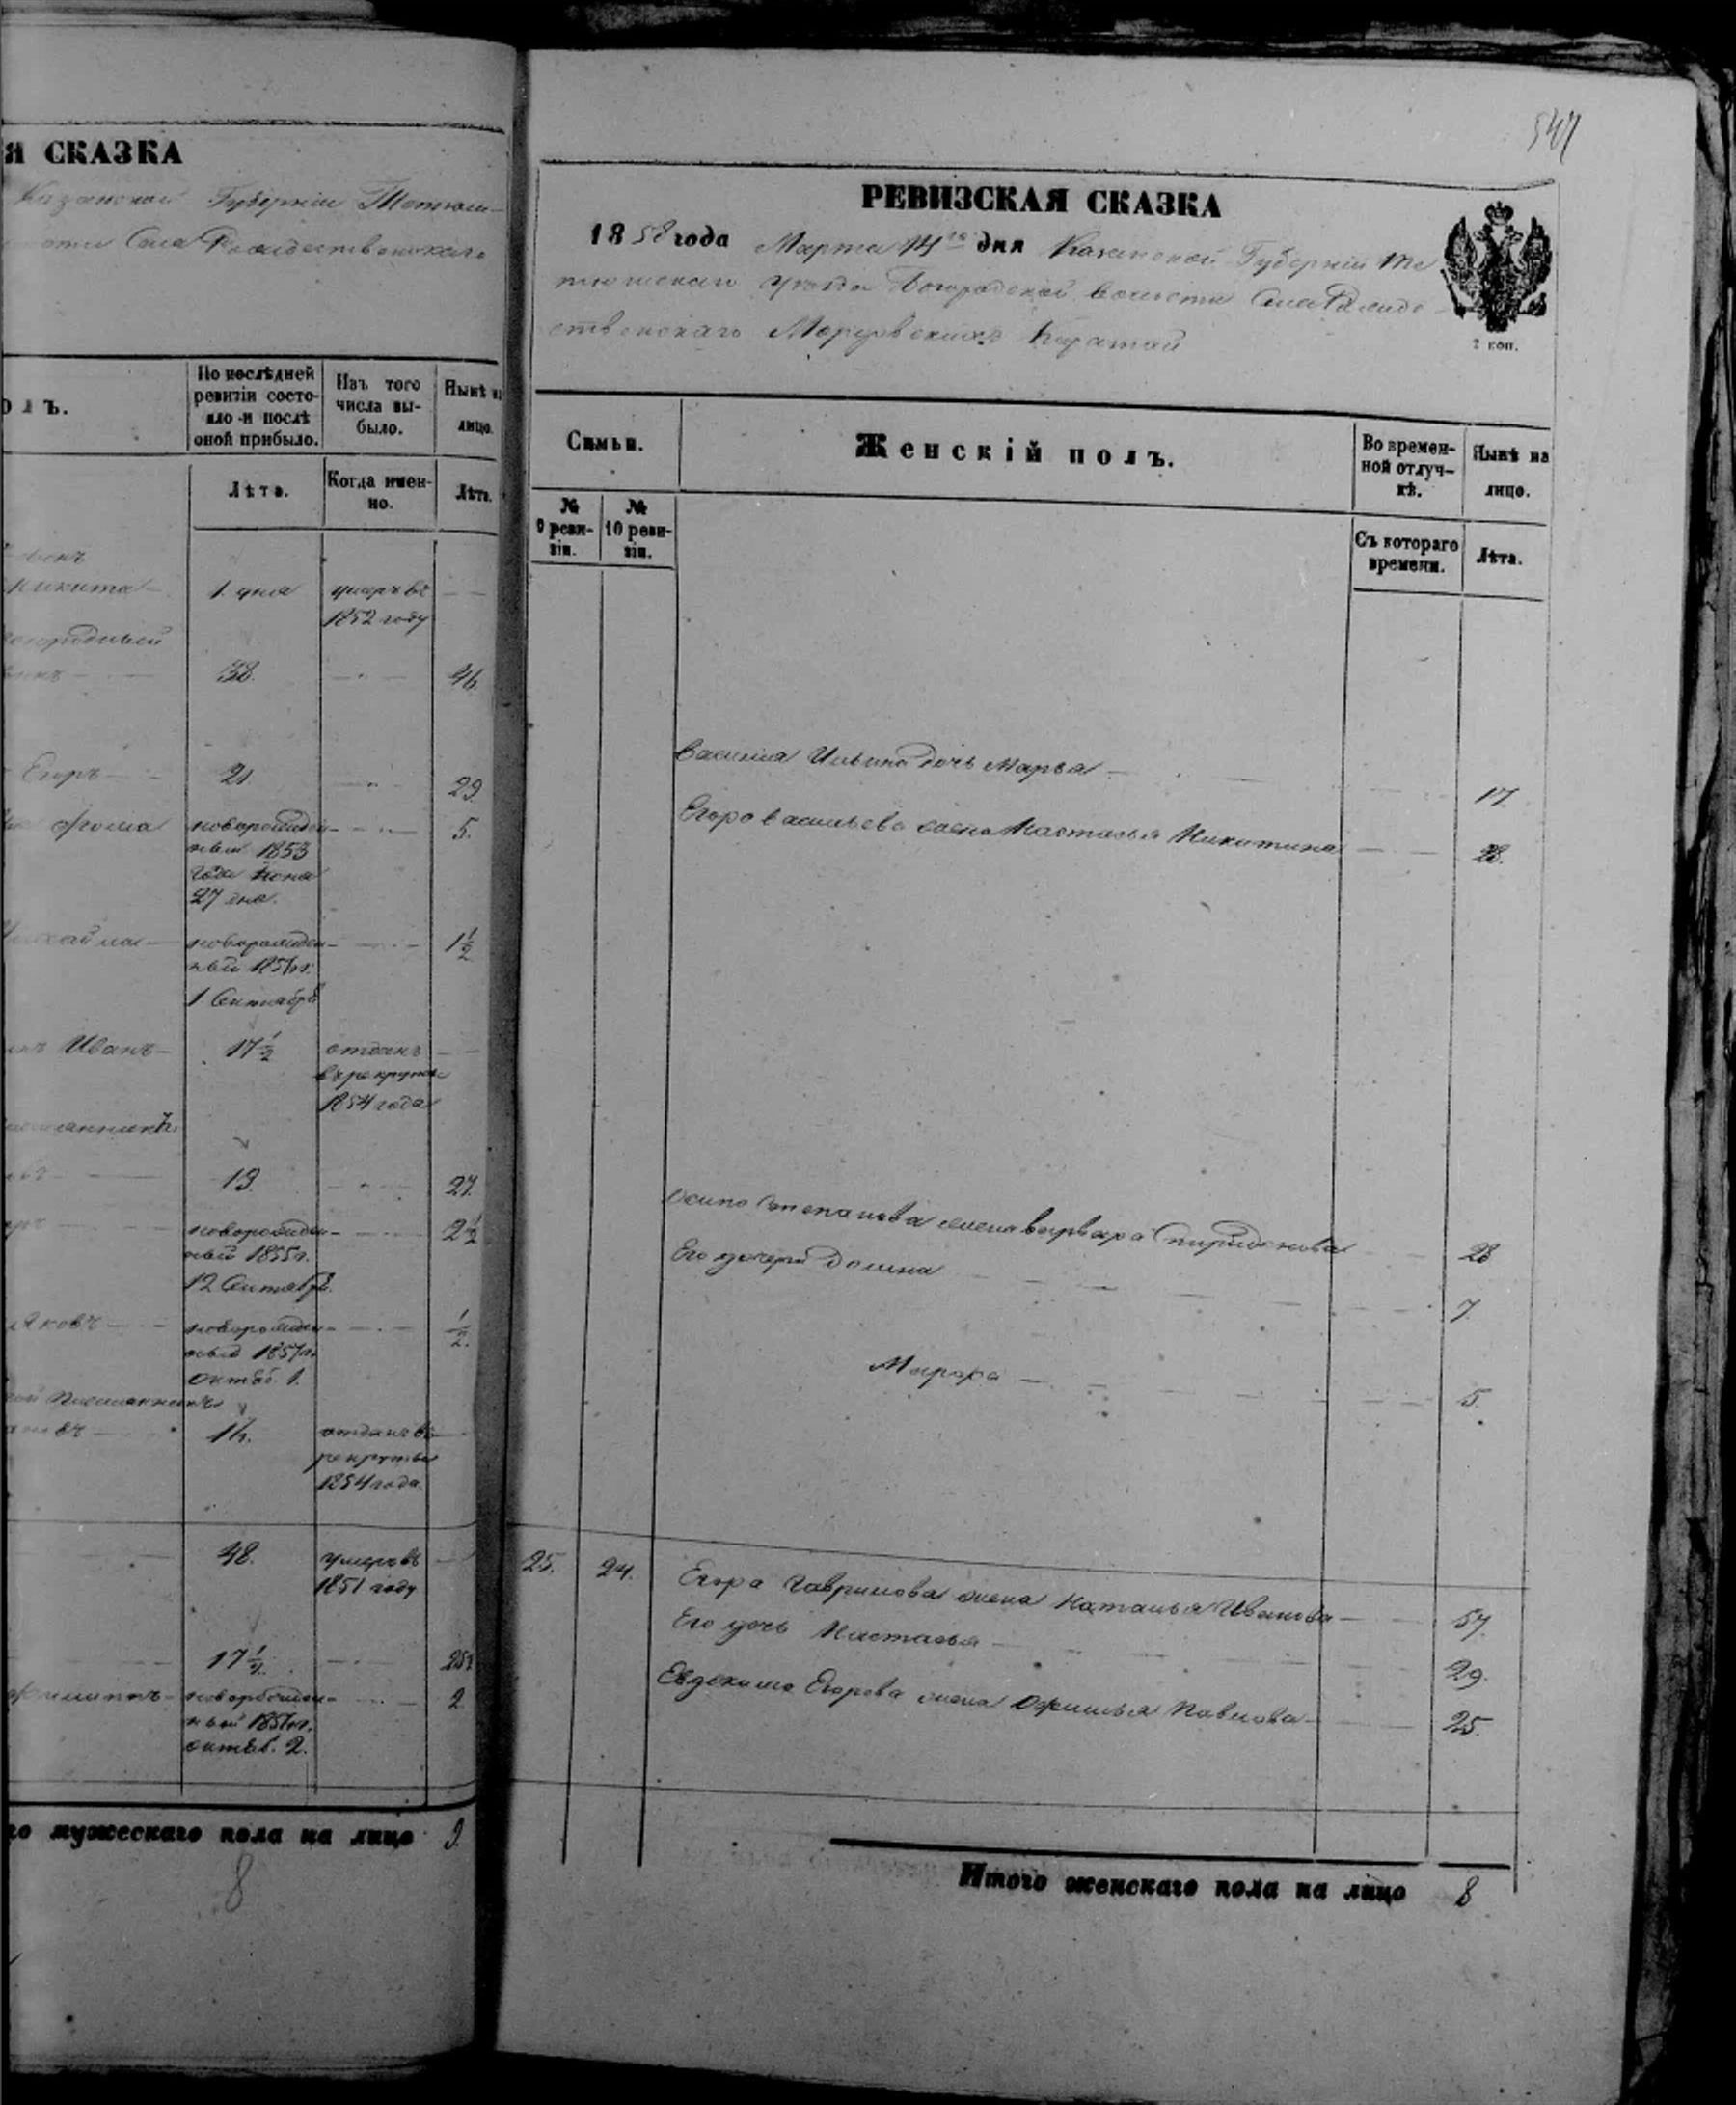 я СКАЗКА
Казанской Губернiи Тетюш-
Села Рождественскаго
олъ.
По послѣдней
ревизiи состо-
яло и послѣ
оной прибыло.
Изъ того
числа вы-
было.
Нынѣ на
лицо.
Лѣта.
Когда имен-
но.
Лѣта.
Никита
1. дня
умеръ въ
1852 году
38.
46.
Егоръ
21.
29.
Фома
новорожден-
ный 1853
года
27 дня.
5.
Михайла
новорожден-
ный 185
1 Сентября
1 1/2
Иванъ
17 1/2
отданъ
въ рекруты
1854 года
13.
21.
новорожден-
ный 1855 г.
12 Сентября.
2 1/2
Яковъ
новорожден-
ный 1857 г.
октяб. 1.
1/2.
племянникъ
14.
отданъ въ
рекруты
1854 года.
48.
умеръ въ
1851 году
17 1/2.
Филиппъ
новорожден-
ный 185
октяб. 2.
2
го мужескаго пола на лицо 9.
8
547
РЕВИЗСКАЯ СКАЗКА
1858 года Марта 14го дня Казанской Губернiи Те
тюшскаго уѣзда Богородской волости Села Рожде-
ственскаго Каратай
2 коп.
Семьи.
Женскiй полъ.
Во времен-
ной отлуч-
кѣ.
Нынѣ на
лицо.
№
9 реви-
зiи.
№
10 реви-
зiи.
Съ котораго
времени.
Лѣта.
Василья Ильина дочь Марья 17.
Егора Васильева жена Настасья Никитина 28.
Осипа Степанова жена Варвара Спиридонова 28
Его дочери Домна 7.
Марфа 5.
25. 24. Егора Гаврилова жена Наталья Иванова 57.
Его дочь Настасья 29.
Евдокима Егорова жена Офимья Павлова 25.
Итого женскаго пола на лицо 8